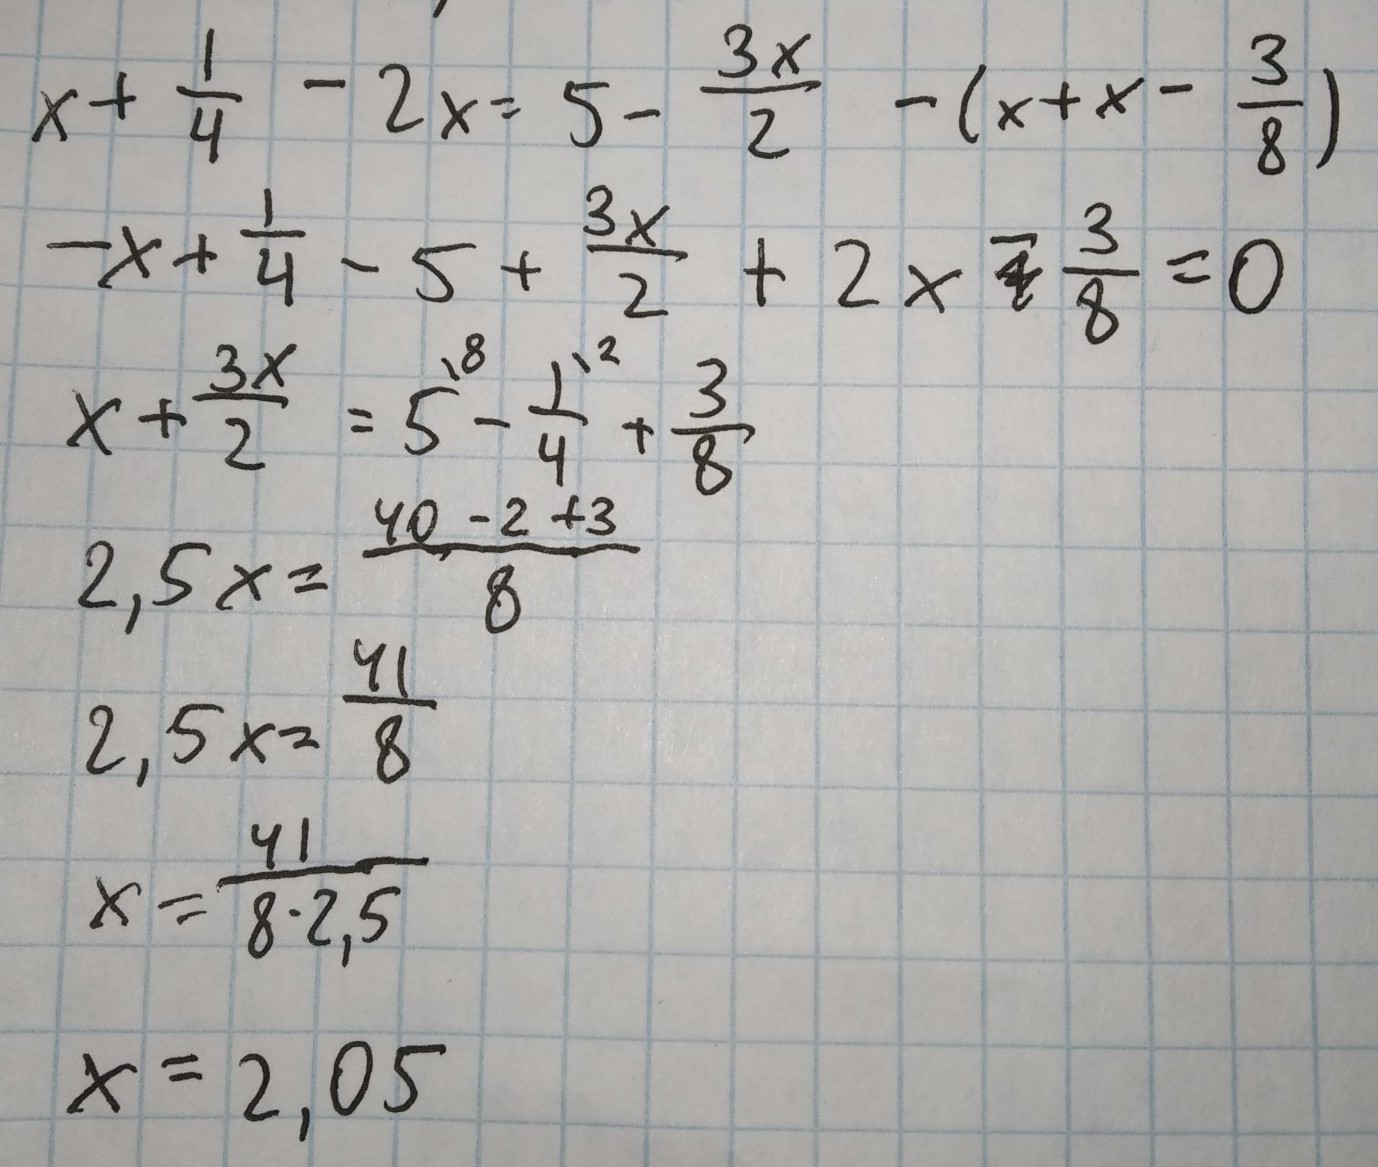 x + 1/4 - 2x = 5 - 3x/2 - (x + x - 3/8)
-x + 1/4 - 5 + 3x/2 + 2x - 3/8 = 0
x + 3x/2 = 5\8 - 1\2/4 + 3/8
2,5x = (40 - 2 + 3)/8
2,5x = 41/8
x = 41/(8·2,5)
x = 2,05